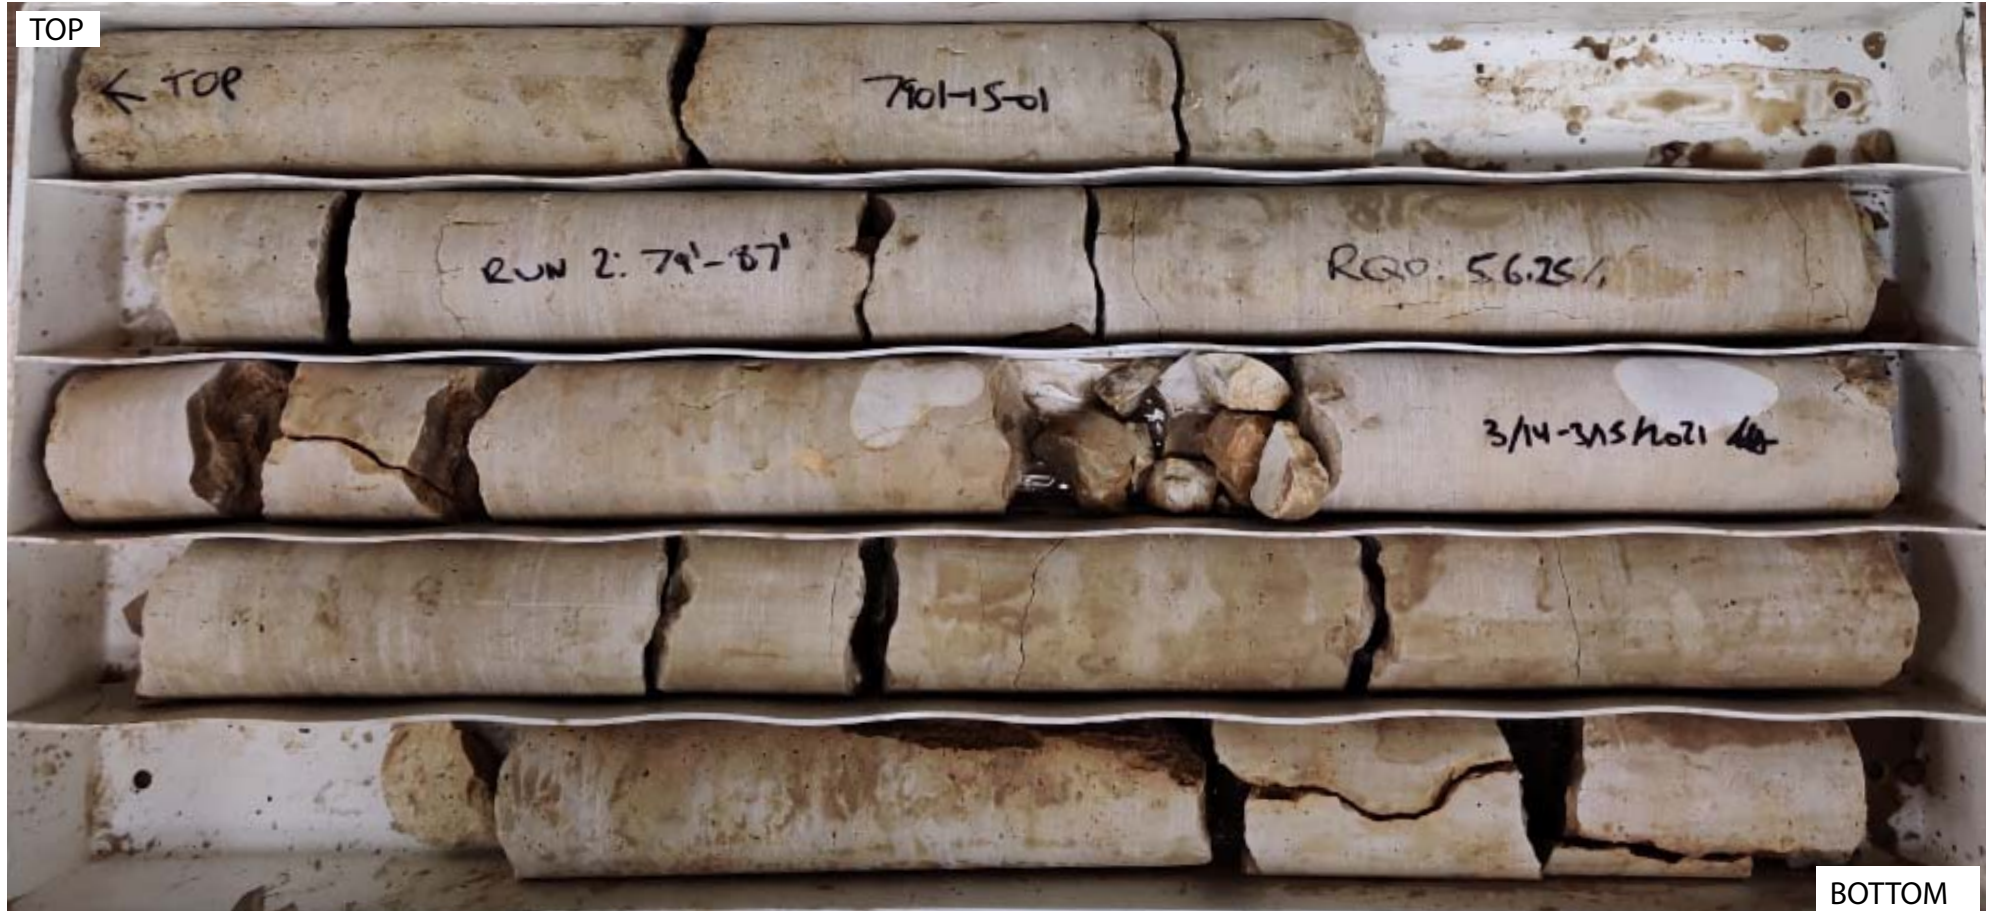 TOP
← TOP
7901-15-01
RUN 2: 79'-87'
RQD: 56.25%
3/14-3/15/2021
BOTTOM